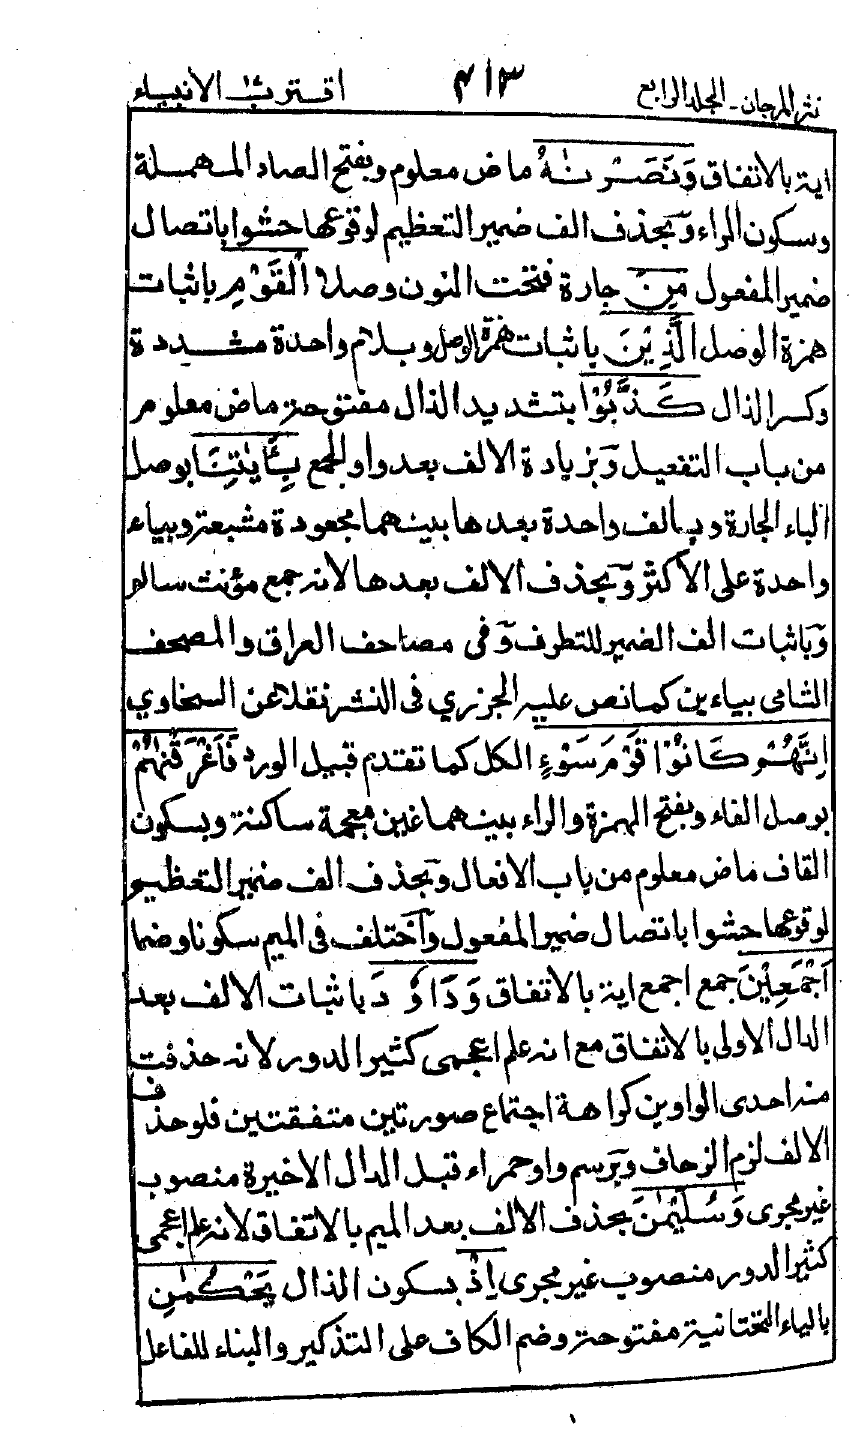 نثر المرجان - المجلد الرابع ٤١٣ اقترب ١٧ الأنبياء
اية بالاتفاق وَنَصَرْنٰهُ ماض معلوم وبفتح الصاد المهملة
وسكون الراء وبحذف الف ضمير التعظيم لوقوعها حشوا باتصال
ضمير المفعول مِنَ جارة فتحت النون وصلا الْقَوْمِ باثبات
همزة الوصل الَّذِيْنَ باثبات همزة الوصل وبلام واحدة مشددة
وكسر الذال كَذَّبُوْا بتشديد الذال مفتوحة ماض معلوم
من باب التفعيل وبزيادة الالف بعد واو الجمع بِـَٔايٰتِنَا بوصل
الباء الجارة وبالف واحدة بعدها بينهما مجعودة مشبعة وبياء
واحدة على الاكثر وبحذف الالف بعدها لانه جمع مؤنث سالم
وباثبات الف الضمير للتطرف وفى مصاحف العراق والمصحف
الشامى بياءين كما نص عليه الجزري فى النشر نقلا عن السخاوي
اِنَّهُمْ كَانُوْا قَوْمَ سَوْءٍ الكل كما تقدم قبيل الورد فَاَغْرَقْنٰهُمْ
بوصل الفاء وبفتح الهمزة والراء بينهما غين معجمة ساكنة وبسكون
القاف ماض معلوم من باب الافعال وبحذف الف ضمير التعظيم
لوقوعها حشوا باتصال ضمير المفعول واختلف فى الميم سكونا وضما
اَجْمَعِيْنَ جمع اجمع اية بالاتفاق وَدَاوٗدَ باثبات الالف بعد
الدال الاولى بالاتفاق مع انه علم اعجمى كثير الدور لانه حذفت
منه احدى الواوين كراهة اجتماع صورتين متفقتين فلو حذف
الالف لزم الزحاف وبرسم واو حمراء قبل الدال الاخيرة منصوب
غير مجرى وَسُلَيْمٰنَ بحذف الالف بعد الميم بالاتفاق لانه علم اعجمى
كثير الدور منصوب غير مجرى اِذْ بسكون الذال يَحْكُمٰنِ
بالياء التحتانية مفتوحة وضم الكاف على التذكير والبناء للفاعل